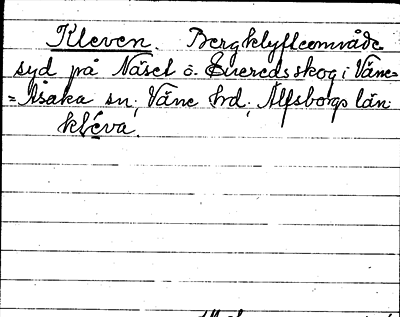 Kleven. Bergklyfteområde
syd på Näset ö. Eueredsskog i Väne=
=Åsaka sn; Väne hrd; Älfsborgs län.
kléva.